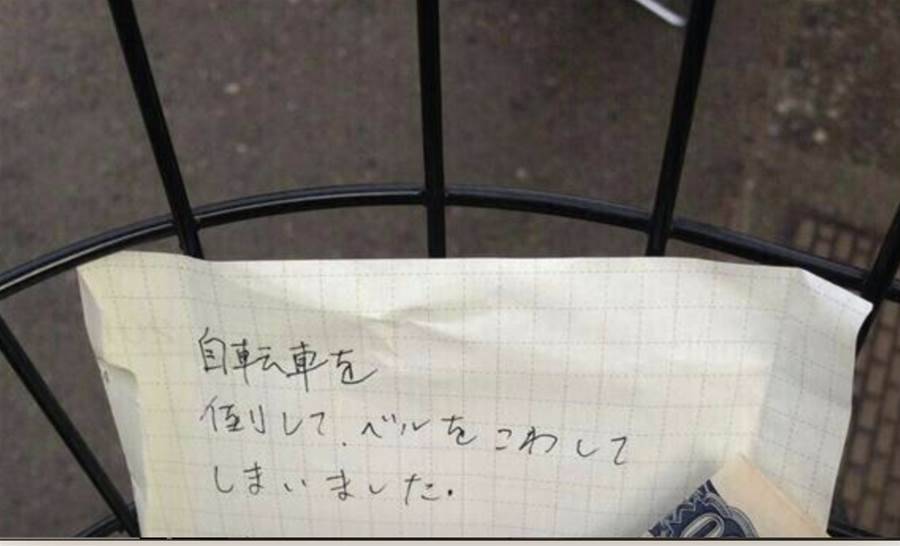 自転車を
倒して、ベルをこわして
しまいました.